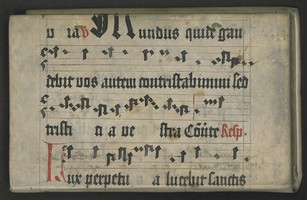 u ia V Mundus quidē gau
debit vos autem contristabimini sed
tristi a a ve stra Cōūte Resp.
Lux perpetu a lucebit sanctis